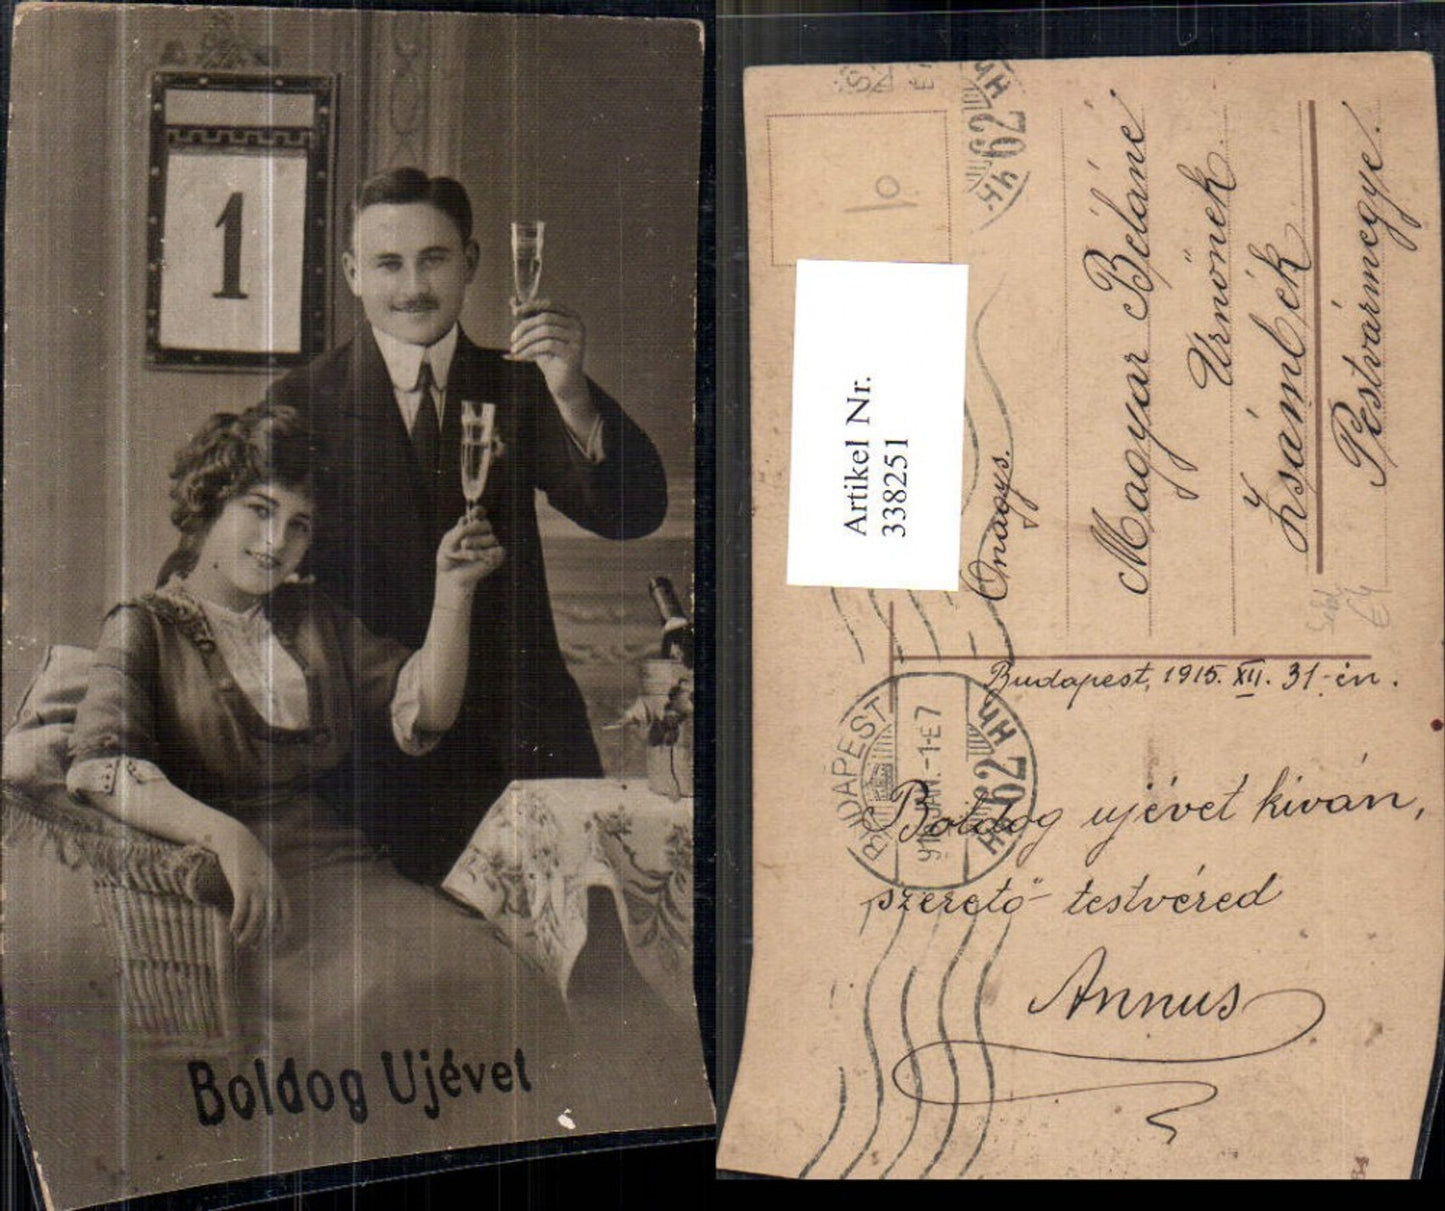 1
Boldog Ujévet
10
Artikel Nr.
338251
Önagys.
Magyar Béláné
Úrnőnek
Zsámbék
Pestvármegye.
Budapest, 1915. XII. 31-én.
BUDAPEST
62
Boldog ujévet kíván,
szerető testvéred
Annus